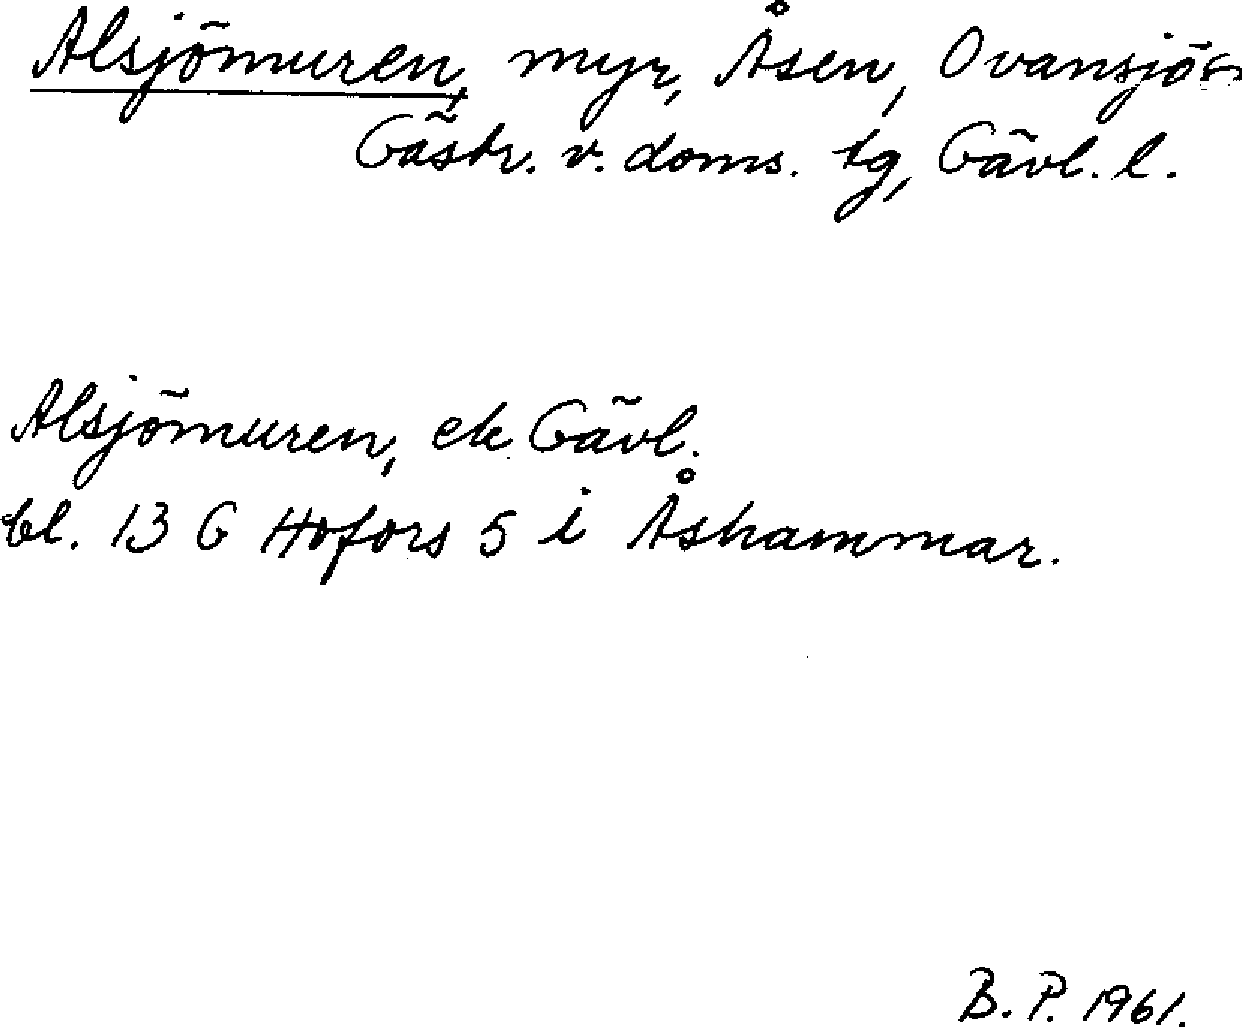 Alsjömuren, myr, Åsen, Ovansjö
Gästr. v. doms. tg, Gävl. l.
Alsjömuren, ek Gävl.
bl. 13 G Hofors 5 i Åshammar.
B. P. 1961.